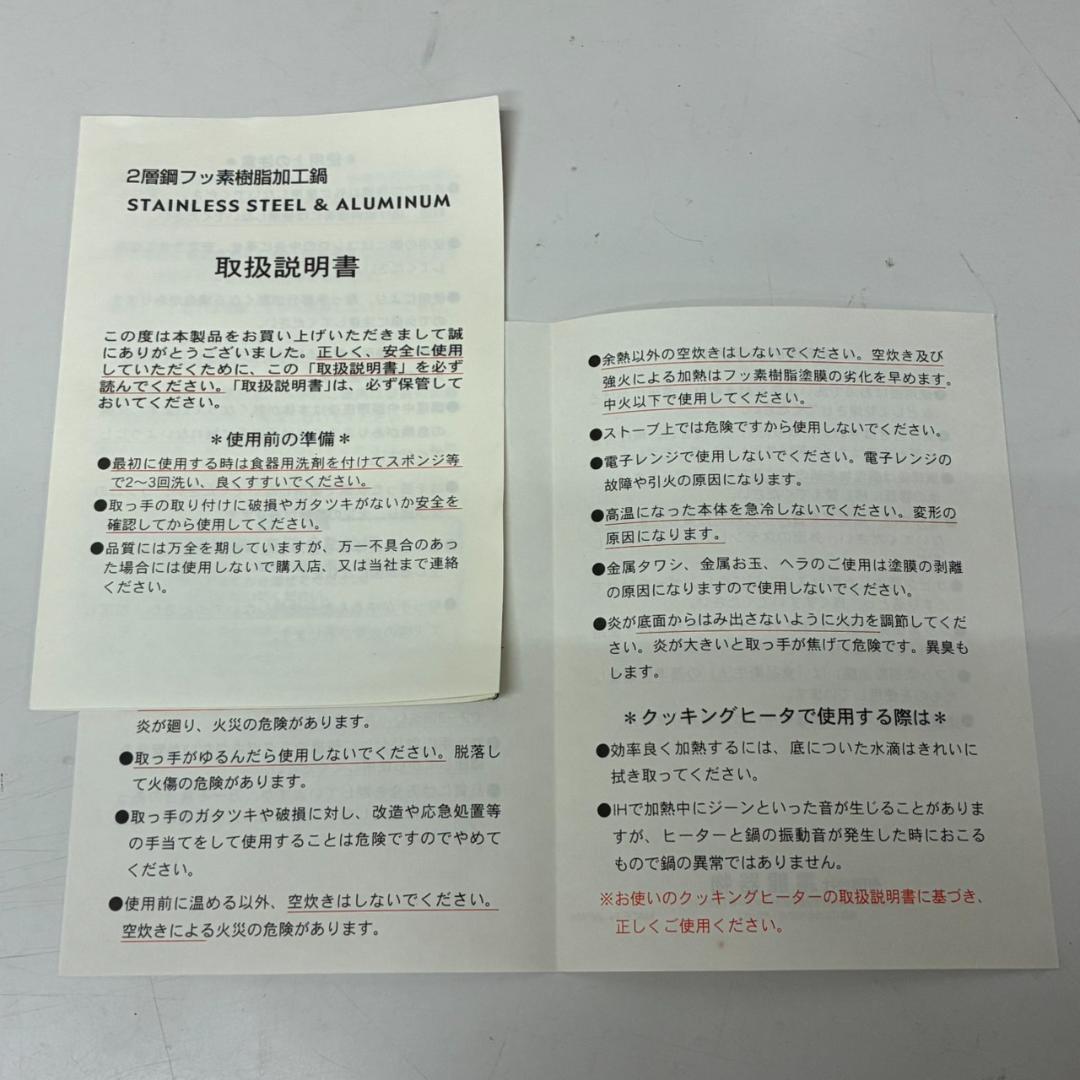 2層鋼フッ素樹脂加工鍋
STAINLESS STEEL & ALUMINUM
取扱説明書
この度は本製品をお買い上げいただきまして誠
にありがとうございました。正しく、安全に使用
していただくために、この「取扱説明書」を必ず
読んでください。「取扱説明書」は、必ず保管して
おいてください。
＊使用前の準備＊
●最初に使用する時は食器用洗剤を付けてスポンジ等
で2〜3回洗い、良くすすいでください。
●取っ手の取り付けに破損やガタツキがないか安全を
確認してから使用してください。
●品質には万全を期していますが、万一不具合のあっ
た場合には使用しないで購入店、又は当社まで連絡
ください。
炎が廻り、火災の危険があります。
●取っ手がゆるんだら使用しないでください。脱落し
て火傷の危険があります。
●取っ手のガタツキや破損に対し、改造や応急処置等
の手当てをして使用することは危険ですのでやめて
ください。
●使用前に温める以外、空炊きはしないでください。
空炊きによる火災の危険があります。
●余熱以外の空炊きはしないでください。空炊き及び
強火による加熱はフッ素樹脂塗膜の劣化を早めます。
中火以下で使用してください。
●ストーブ上では危険ですから使用しないでください。
●電子レンジで使用しないでください。電子レンジの
故障や引火の原因になります。
●高温になった本体を急冷しないでください。変形の
原因になります。
●金属タワシ、金属お玉、ヘラのご使用は塗膜の剥離
の原因になりますので使用しないでください。
●炎が底面からはみ出さないように火力を調節してくだ
さい。炎が大きいと取っ手が焦げて危険です。異臭も
します。
＊クッキングヒータで使用する際は＊
●効率良く加熱するには、底についた水滴はきれいに
拭き取ってください。
●IHで加熱中にジーンといった音が生じることがありま
すが、ヒーターと鍋の振動音が発生した時におこる
もので鍋の異常ではありません。
※お使いのクッキングヒーターの取扱説明書に基づき、
正しくご使用ください。